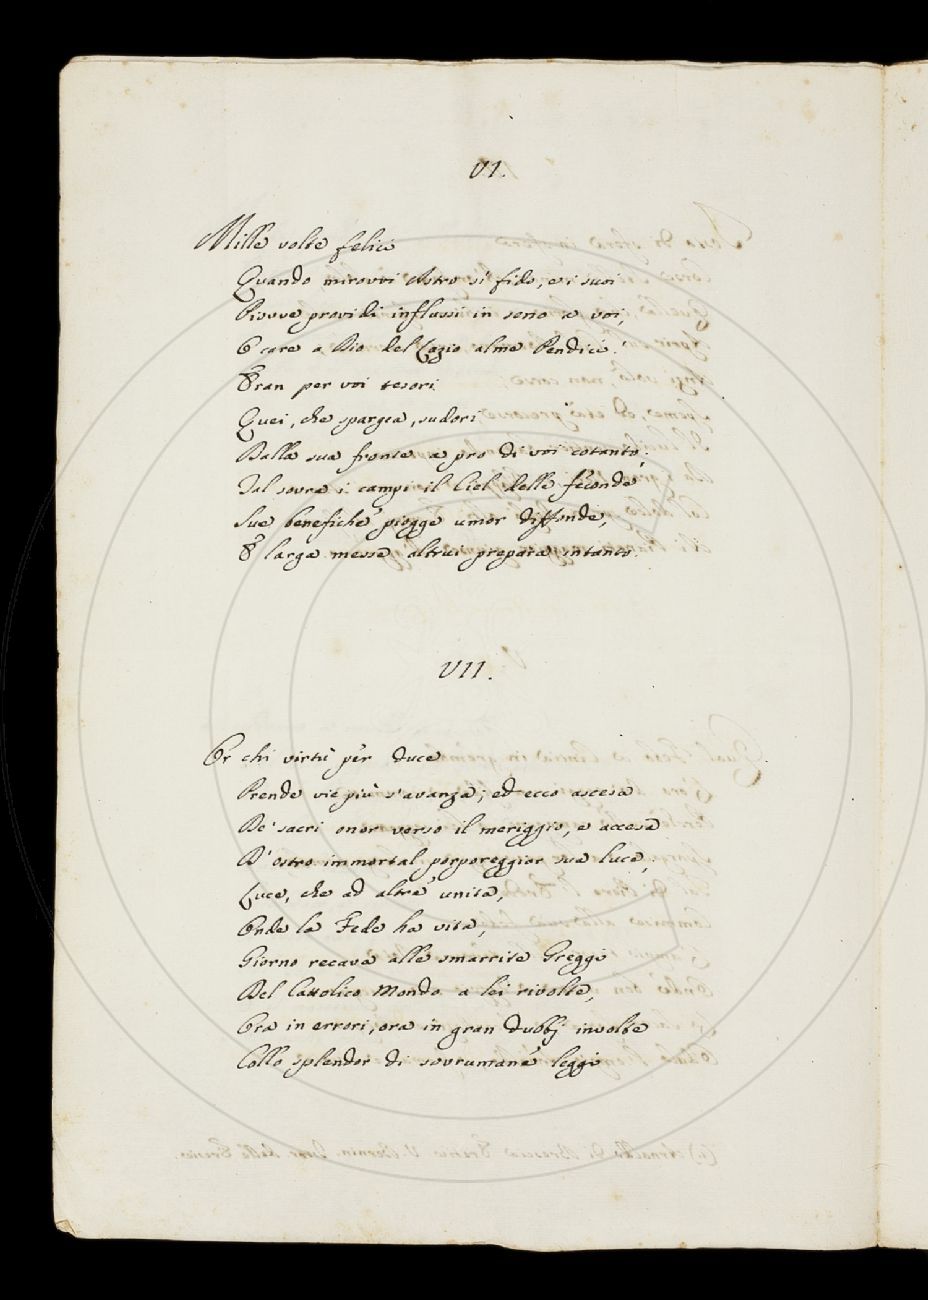 VI.
Mille volte felici
Quando mirovvi Astro sì fido, e i suoi
Piovve providi influssi in seno a voi,
O care a Dio del Lazio alme Pendici.
Eran per voi tesori
Quei, che spargea, sudori
Dalla sua fronte a pro di voi cotanto:
Tal sovra i campi il Ciel delle feconde
Sue benefiche piogge umor diffonde,
E larga messe altrui prepara intanto.
VII.
Or chi virtù per duce
Prende vie più s'avanza; ed ecco ascesa
De' sacri onor verso il meriggio, e accesa
D'ostro immortal porporeggiar sua luce;
Luce, che ad altre unita,
Onde la Fede ha vita,
Giorno recava alle smarrite Gregge
Del Cattolico Mondo a lei rivolte,
Ora in errori, ora in gran dubbj involte
Collo splendor di sovrumane leggi